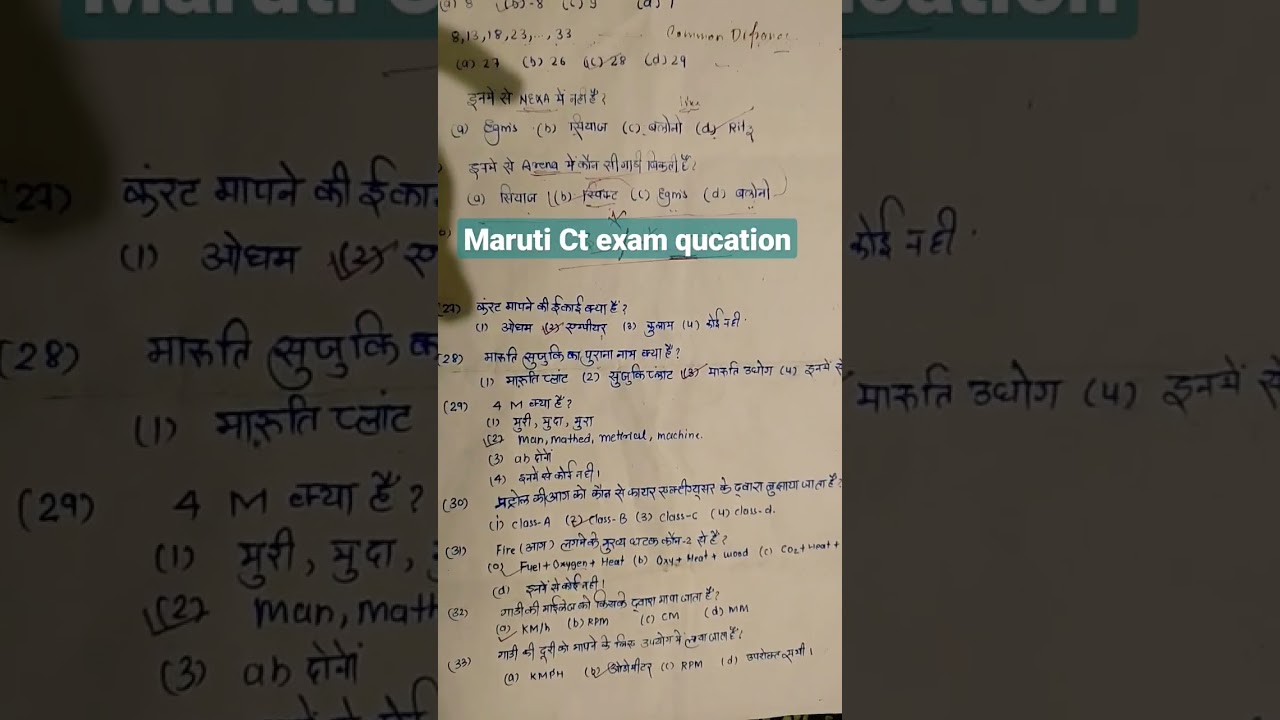 (a) 8 (b) -8 (c) 9 (d) 1
8,13,18,23,..., 33 Common
(a) 27 (b) 26 (c) 28 (d) 29
इनमे से NEXA में नही है?
(a) Egnis (b) सियाज (c) बलोनो (d) Ritz
इनमे से Arena में कौन सी गाडी बिकती है?
(a) सियाज (b) स्विफ्ट (c) Egnis (d) बलोनो
Maruti Ct exam qucation
(27) करंट मापने की ईकाई क्या है?
(1) ओधम (2) एम्पीयर (3) कुलाम (4) कोई नही
(28) मारुति सुजुकि का पुराना नाम क्या है?
(1) मारुति प्लांट (2) सुजुकि प्लांट (3) मारुति उधोग (4) इनमें से
(29) 4 M क्या है?
(1) मुरी, मुदा, मुरा
(2) man, mathed, metirial, machine.
(3) ab दोनों
(4) इनमे से कोई नही।
(30) पेट्रोल की आग को कौन से फायर एक्टीग्यूसर के द्वारा बुझाया जाता है?
(1) class-A (2) class-B (3) class-C (4) class-d.
(31) Fire (आग) लगने के मुख्य घटक कौन-2 से है?
(a) Fuel + Oxygen + Heat (b) Oxy + Heat + wood (c) CO2 + Heat +
(d) इनमें से कोई नही।
(32) गाडी की माईलेज को किसके द्वारा मापा जाता है?
(a) KM/h (b) RPM (c) CM (d) MM
(33) गाडी की दूरी को मापने के लिए उपयोग मे लाया जाता है?
(a) KMPH (b) ओडोमीटर (c) RPM (d) उपरोक्त सभी।